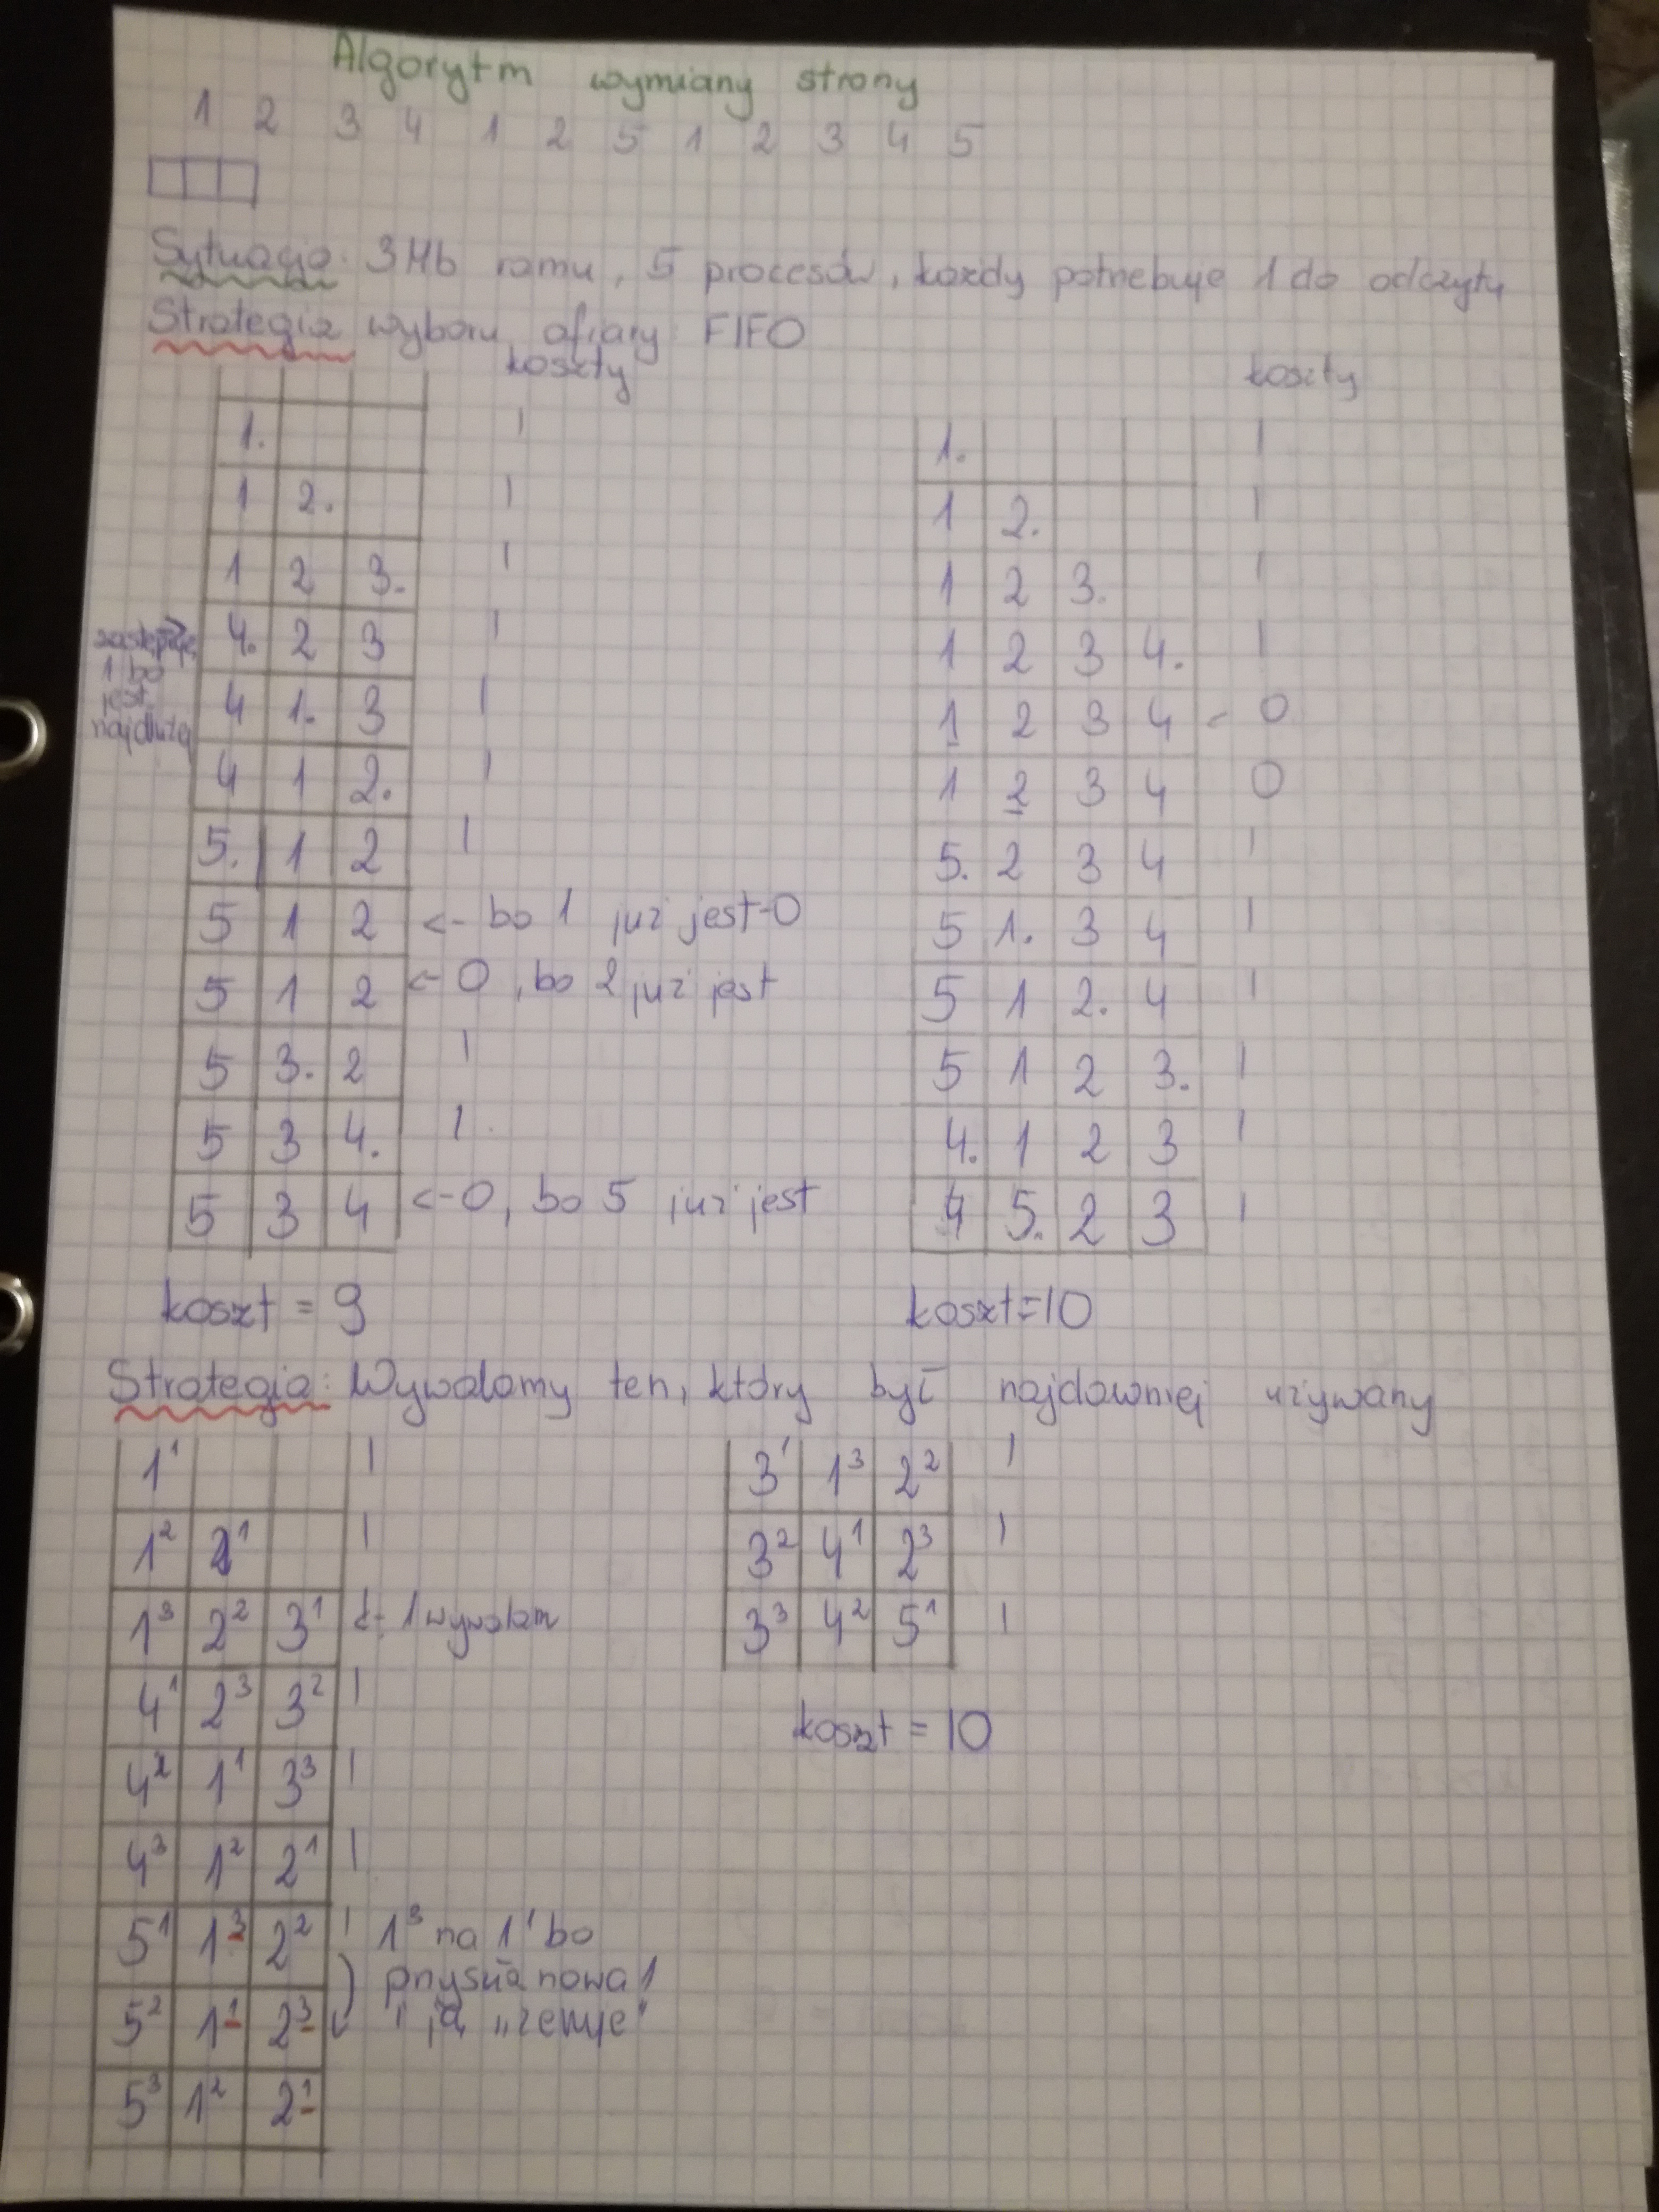 Algorytm wymiany strony
1 2 3 4 1 2 5 1 2 3 4 5
Sytuacja: 3Mb ramu, 5 procesów, każdy potrzebuje 1 do odczytu
Strategia wyboru ofiary: FIFO
koszty
1. 1
1 2. 1
1 2 3. 1
zastępuje 1 bo jest najdłużej
4. 2 3 1
4 1. 3 1
4 1 2. 1
5. 1 2 1
5 1 2 <- bo 1 już jest-0
5 1 2 <-0, bo 2 już jest
5 3. 2 1
5 3 4. 1
5 3 4 <-0, bo 5 już jest
koszt = 9
koszty
1. 1
1 2. 1
1 2 3. 1
1 2 3 4. 1
1 2 3 4 - 0
1 2 3 4 0
5. 2 3 4 1
5 1. 3 4 1
5 1 2. 4 1
5 1 2 3. 1
4. 1 2 3 1
4 5. 2 3 1
koszt=10
Strategia: Wywalamy ten, który był najdawniej używany
1¹ 1
1² 2¹ 1
1³ 2² 3¹ <- 1 wywalam
4¹ 2³ 3² 1
4² 1¹ 3³ 1
4³ 1² 2¹ 1
5¹ 1³ 2² 1 1³ na 1¹ bo
przyszła nowa 1
5² 1¹ 2³ i ją „zeruje"
5³ 1² 2¹
3¹ 1³ 2² 1
3² 4¹ 2³ 1
3³ 4² 5¹ 1
koszt = 10